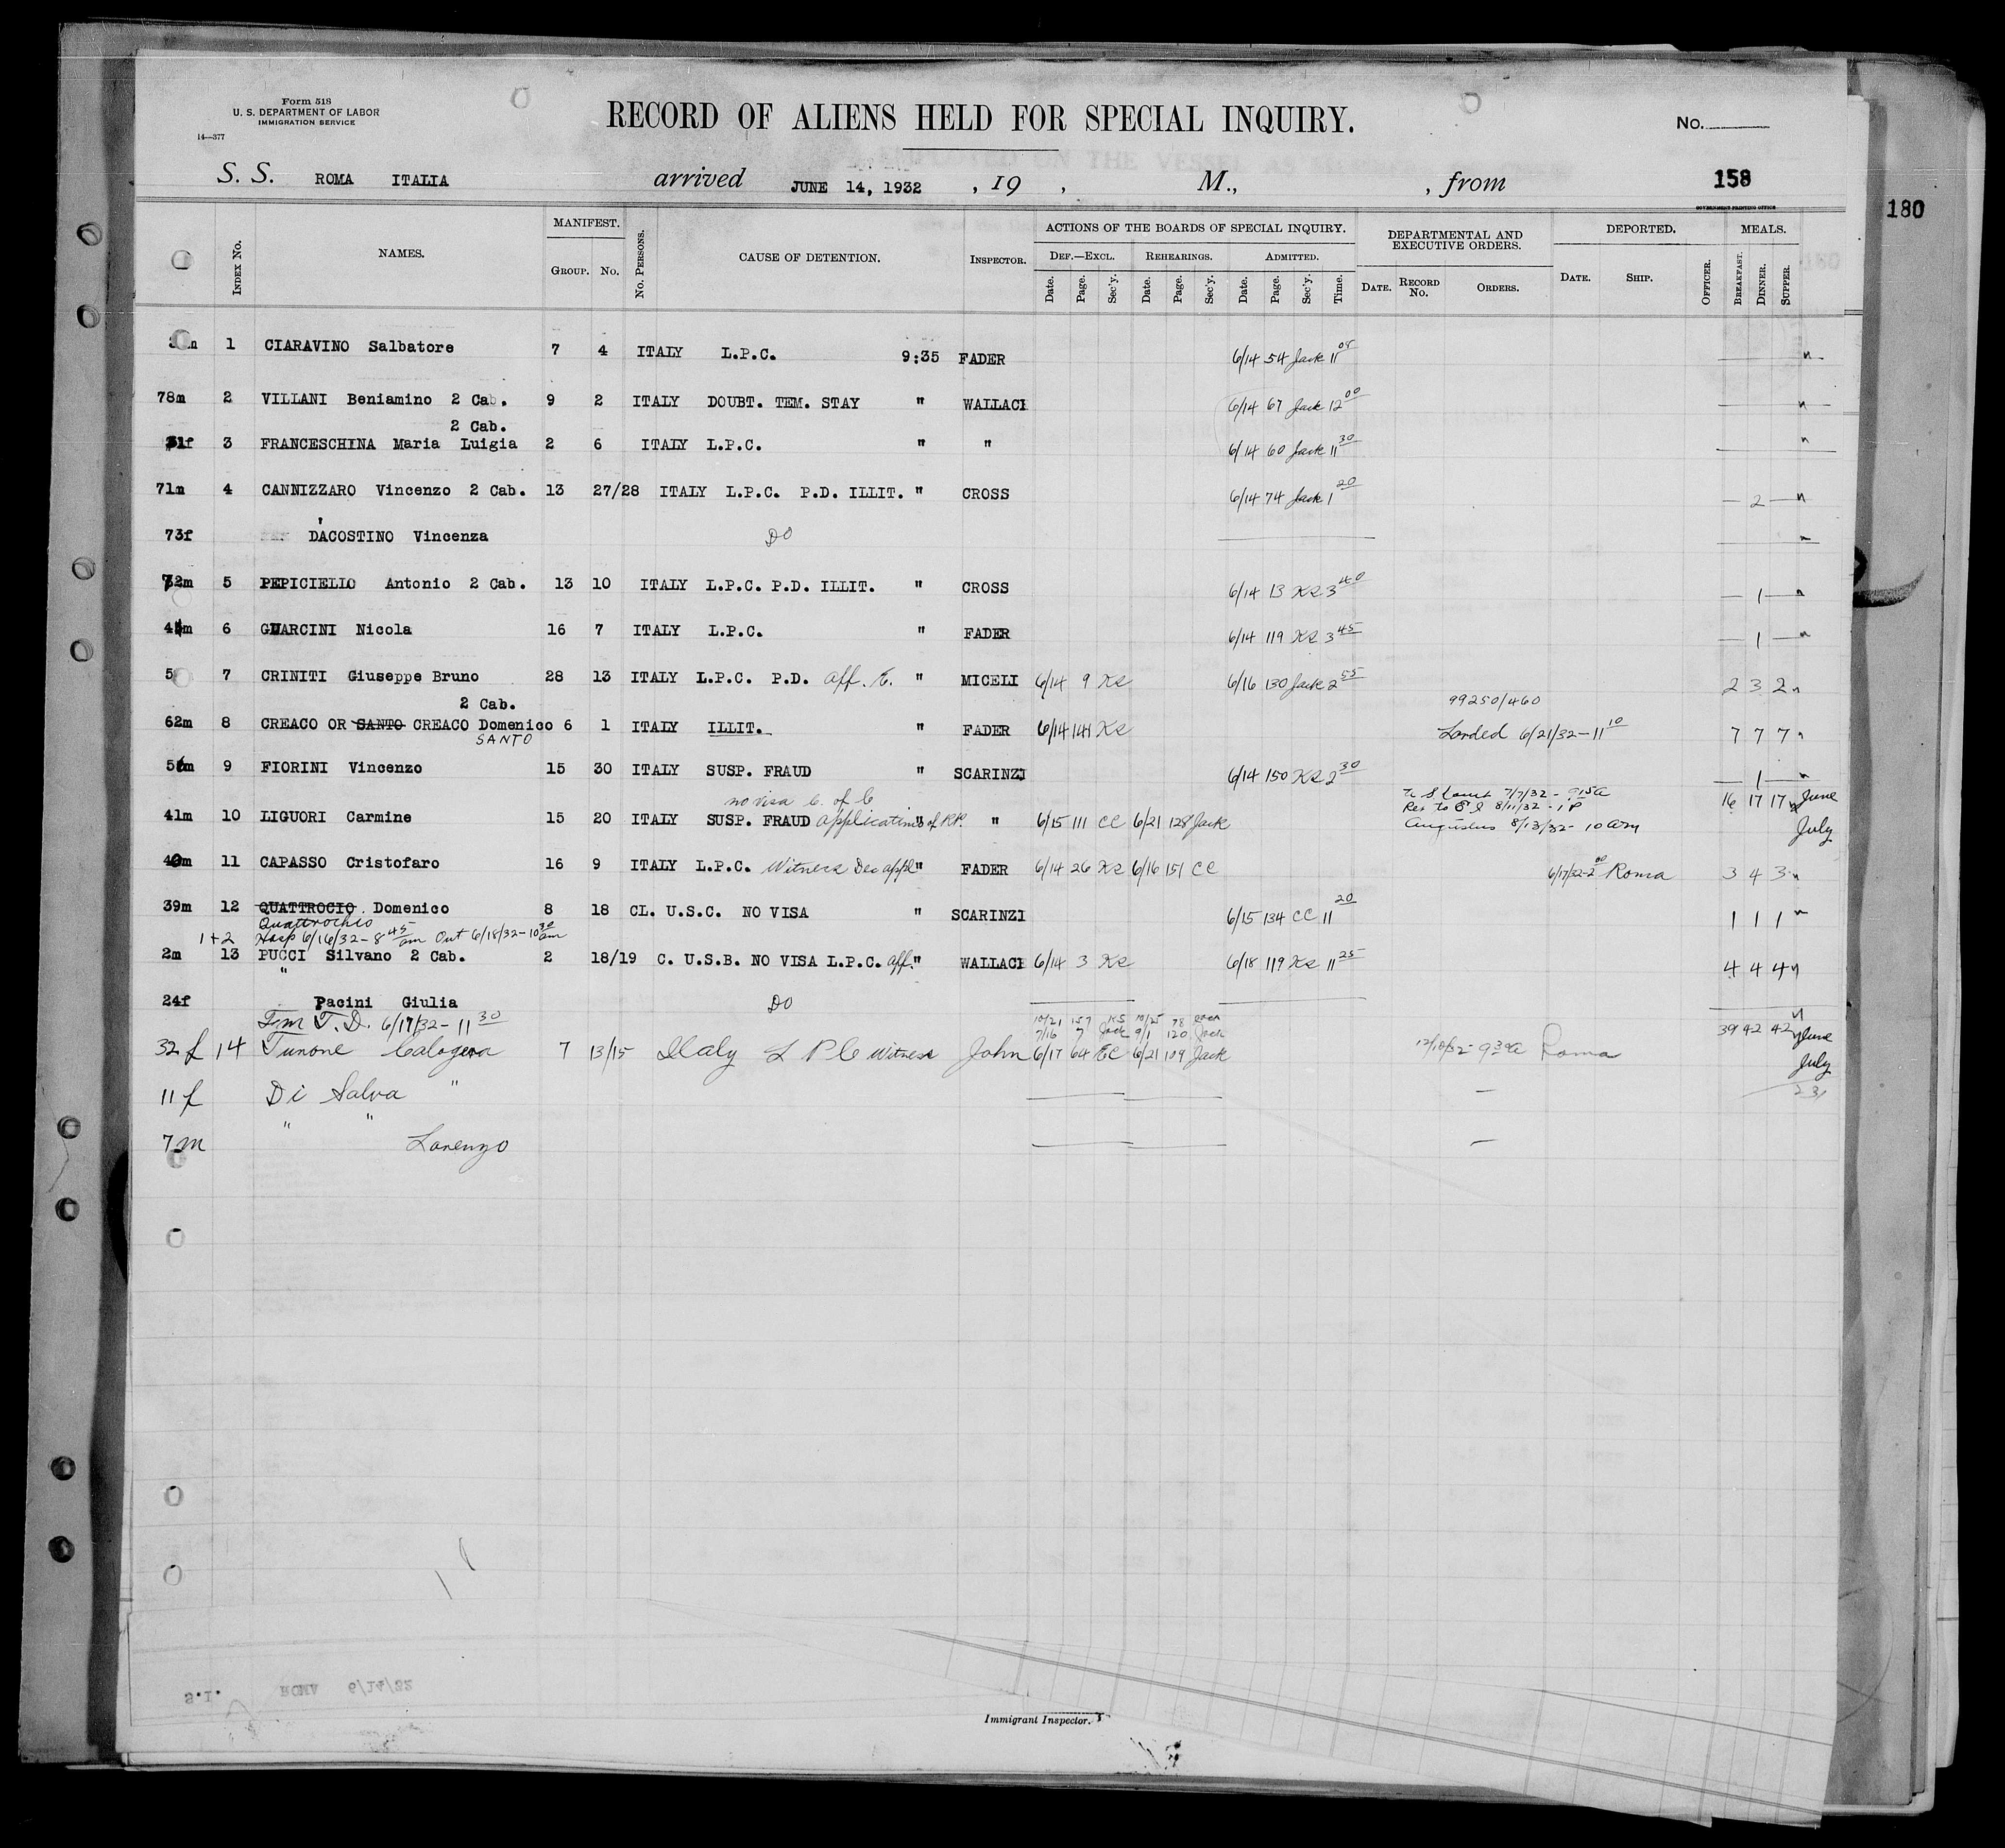 Form 518
U. S. DEPARTMENT OF LABOR
IMMIGRATION SERVICE
14—377
RECORD OF ALIENS HELD FOR SPECIAL INQUIRY.
No.
S. S. ROMA ITALIA arrived JUNE 14, 1932 , 19 , M., , from 158
GOVERNMENT PRINTING OFFICE
180
Index No. NAMES. MANIFEST. Group. No. No. Persons. CAUSE OF DETENTION. Inspector. ACTIONS OF THE BOARDS OF SPECIAL INQUIRY. DEPARTMENTAL AND EXECUTIVE ORDERS. DEPORTED. MEALS.
Def.—Excl. Rehearings. Admitted.
Date. Page. Sec'y. Date. Page. Sec'y. Date. Page. Sec'y. Time. Date. Record No. Orders. Date. Ship. Officer. Breakfast. Dinner. Supper.
1 CIARAVINO Salbatore 7 4 ITALY L.P.C. 9:35 FADER 6/14 54 Jack 11
78m 2 VILLANI Beniamino 2 Cab. 9 2 ITALY DOUBT. TEM. STAY " WALLACE 6/14 67 Jack 12 00
2 Cab.
31f 3 FRANCESCHINA Maria Luigia 2 6 ITALY L.P.C. " " 6/14 60 Jack 11 30
71m 4 CANNIZZARO Vincenzo 2 Cab. 13 27/28 ITALY L.P.C. P.D. ILLIT. " CROSS 6/14 74 Jack 1 20 — 2 —
73f D'ACOSTINO Vincenza DO
72m 5 PEPICIELLO Antonio 2 Cab. 13 10 ITALY L.P.C. P.D. ILLIT. " CROSS 6/14 13 KS 3 40 — 1 —
6 GUARCINI Nicola 16 7 ITALY L.P.C. " FADER 6/14 119 KS 3 45 — 1 —
7 CRINITI Giuseppe Bruno 28 13 ITALY L.P.C. P.D. aff. E. " MICELI 6/14 9 KS 6/16 130 Jack 2 55 2 3 2
2 Cab. 99250/460
62m 8 CREACO OR SANTO CREACO Domenico 6 1 ITALY ILLIT. " FADER 6/14 141 KS Landed 6/21/32 - 11 10 7 7 7
SANTO
9 FIORINI Vincenzo 15 30 ITALY SUSP. FRAUD " SCARINZI 6/14 150 KS 2 30 — 1 —
no visa C. of C
To S Court 7/7/32 - 9 15 a
Ret to E I 8/11/32 - 1 P
41m 10 LIGUORI Carmine 15 20 ITALY SUSP. FRAUD application of RP. " " 6/15 111 CC 6/21 128 Jack 16 17 17 June
Augustus 8/13/32 - 10 am July
40m 11 CAPASSO Cristofaro 16 9 ITALY L.P.C. Witness Dec appl " FADER 6/14 26 KS 6/16 151 CC 6/17/32 - 2 00 Roma 3 4 3
39m 12 QUATTROCIO Domenico 8 18 CL. U.S.C. NO VISA " SCARINZI 6/15 134 CC 11 20 1 1 1
Quattrochio
1+2 Hosp 6/16/32 - 8 45 am Out 6/18/32 - 10 30 am
2m 13 PUCCI Silvano 2 Cab. 2 18/19 C. U.S.B. NO VISA L.P.C. aff. " WALLACE 6/14 3 KS 6/18 119 KS 11 25 4 4 4
24f " Pacini Giulia DO
Frm T. D. 6/17/32 - 11 30
10/21 157 KS 10/25 78
7/16 7 Jack 9/1 120 Jack 39 42 42 June
32 f 14 Tunone Calogera 7 13/15 Italy L P C Witness John 6/17 64 EC 6/21 109 Jack 12/10/32 - 9 30 a Roma
July
11 f Di Salva "
7 m " " Lorenzo
S.I. ROMA 6/14/32
Immigrant Inspector.